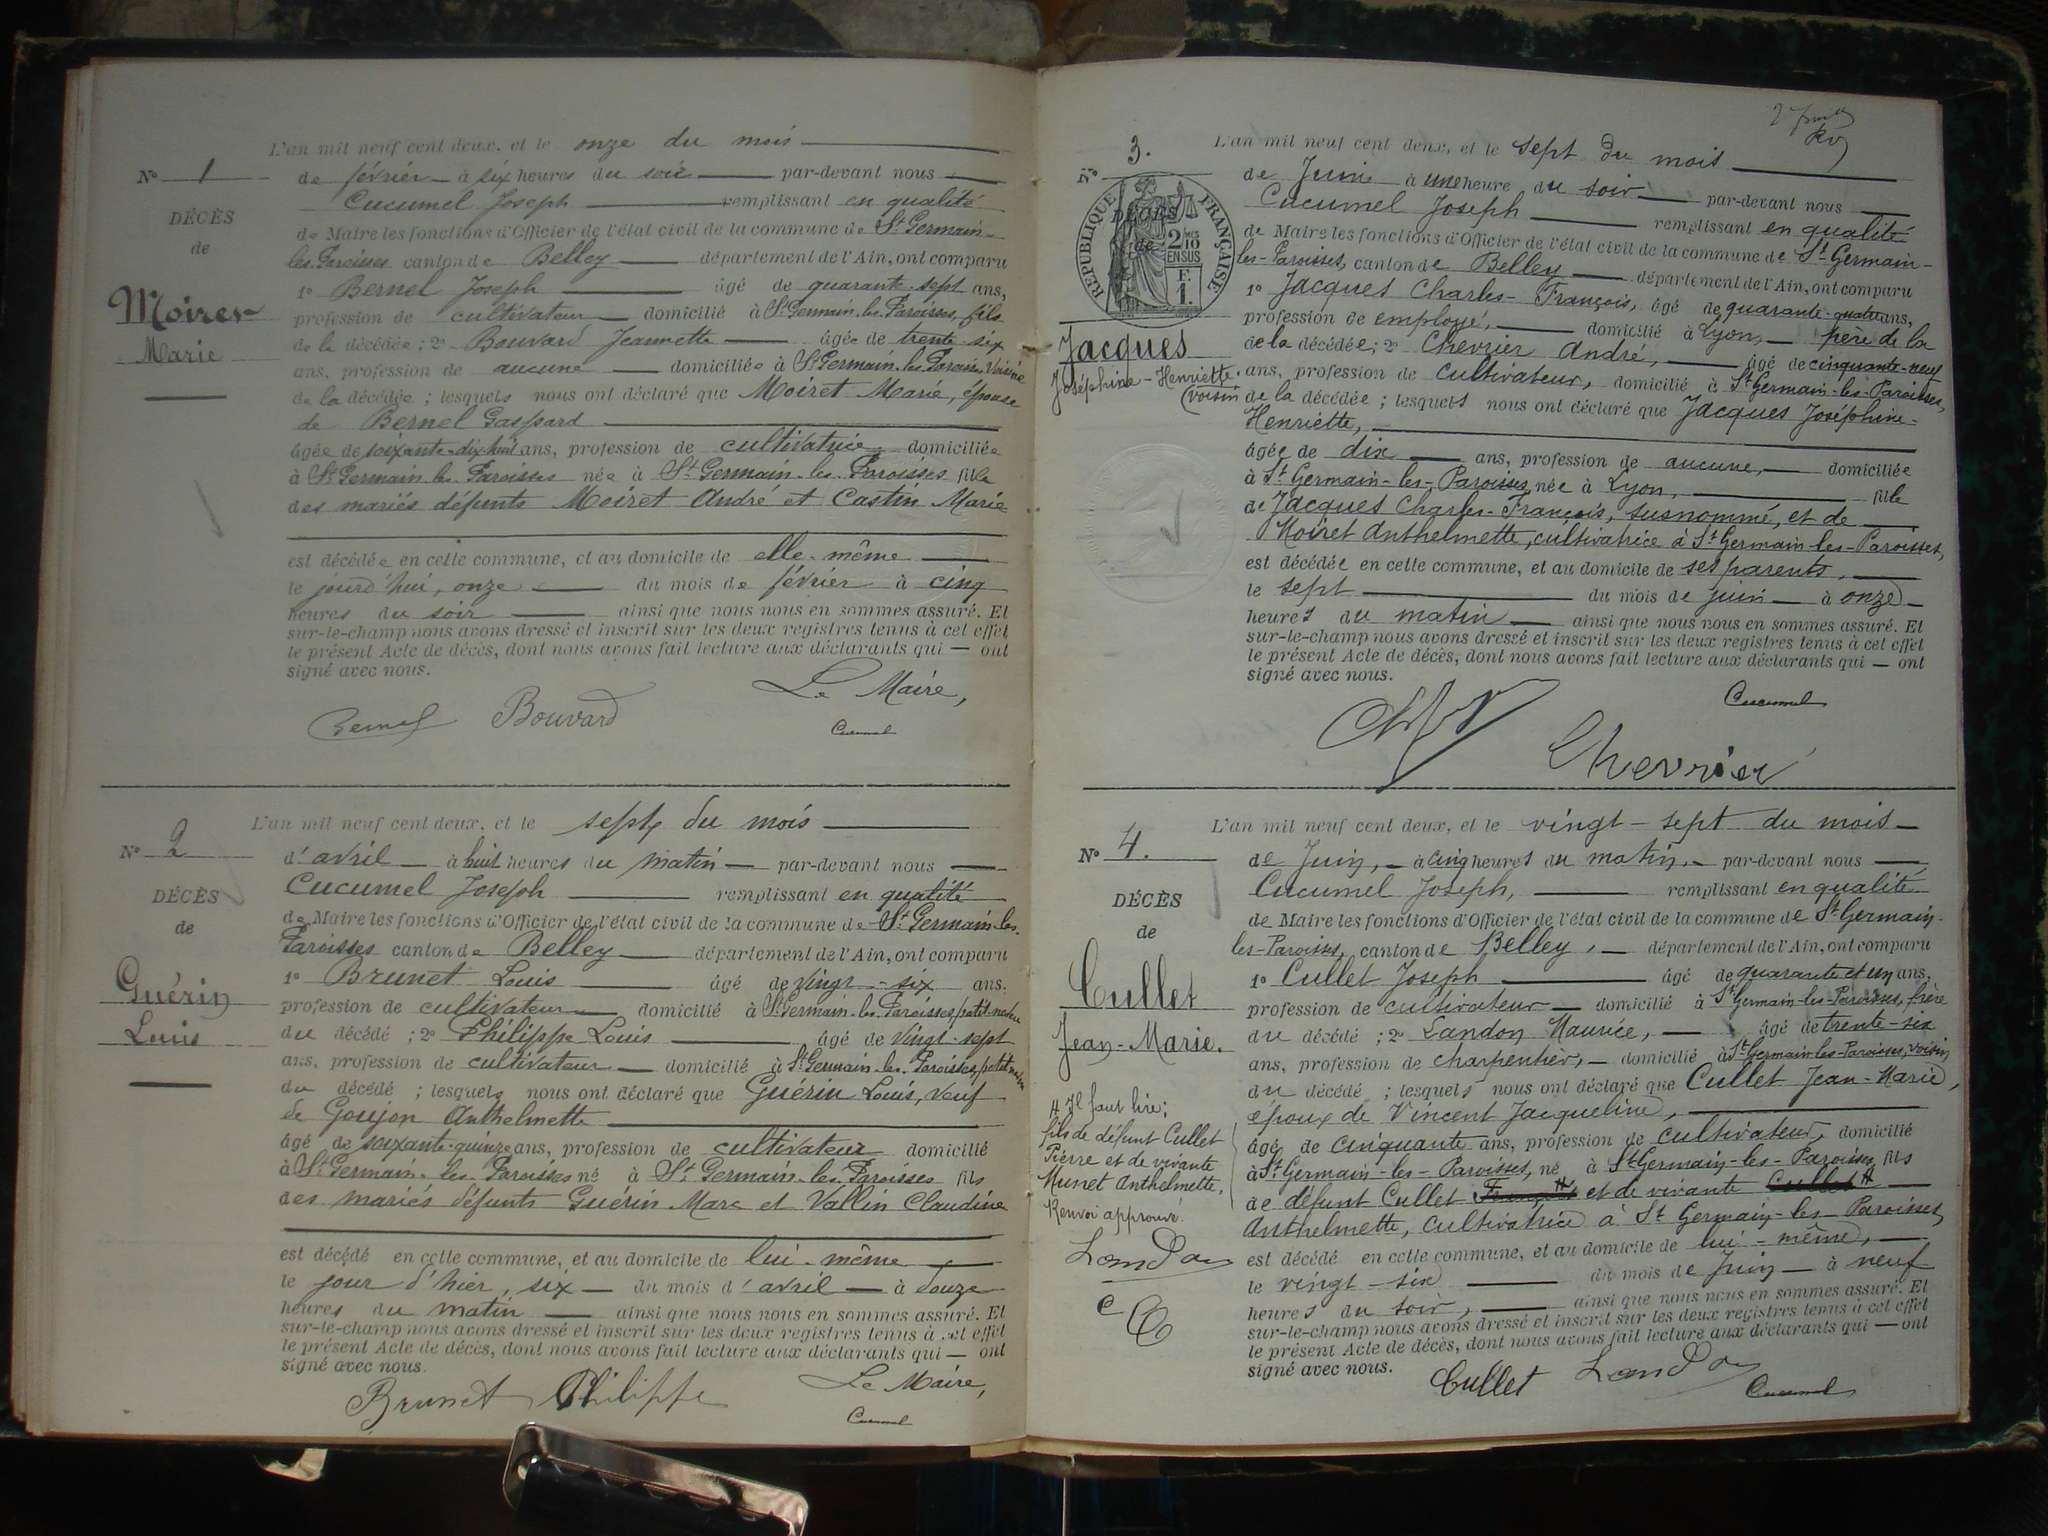 L'an mil neuf cent deux, et le onze du mois
No 1
de février à six heures du soir par-devant nous
Cucumel Joseph remplissant en qualité
DÉCÈS
de Maire les fonctions d'Officier de l'état civil de la commune de St Germain-
de
les-Paroisses canton de Belley département de l'Ain, ont comparu
Moiret
Marie
1o Bernel Joseph âgé de quarante-sept ans,
profession de cultivateur domicilié à St Germain-les-Paroisses, fils
de la décédée; 2o Bouvard Jeannette âgée de trente-six
ans, profession de aucune domiciliée à St Germain-les-Paroisses, voisine
de la décédée; lesquels nous ont déclaré que Moiret Marie, épouse
de Bernel Gaspard
âgée de soixante-dix-huit ans, profession de cultivatrice domiciliée
à St Germain-les-Paroisses née à St Germain-les-Paroisses fille
des mariés défunts Moiret André et Castin Marie
est décédée en cette commune, et au domicile de elle-même
le jourd'hui, onze du mois de février à cinq
heures du soir ainsi que nous nous en sommes assuré. Et
sur-le-champ nous avons dressé et inscrit sur les deux registres tenus à cet effet
le présent Acte de décès, dont nous avons fait lecture aux déclarants qui — ont
signé avec nous.
Le Maire,
Bernel Bouvard
Cucumel
L'an mil neuf cent deux, et le sept du mois
No 2
d'avril à huit heures du matin par-devant nous
Cucumel Joseph remplissant en qualité
DÉCÈS
de
Guérin
Louis
de Maire les fonctions d'Officier de l'état civil de la commune de St Germain-les-
Paroisses canton de Belley département de l'Ain, ont comparu
1o Brunet Louis âgé de vingt-six ans,
profession de cultivateur domicilié à St Germain-les-Paroisses, petit-neveu
du décédé; 2o Philippe Louis âgé de vingt-sept
ans, profession de cultivateur domicilié à St Germain-les-Paroisses, petit-neveu
du décédé; lesquels nous ont déclaré que Guérin Louis, veuf
de Goujon Anthelmette
âgé de soixante-quinze ans, profession de cultivateur domicilié
à St Germain-les-Paroisses né à St Germain-les-Paroisses fils
des mariés défunts Guérin Marc et Vallin Claudine
est décédé en cette commune, et au domicile de lui-même
le jour d'hier, six du mois d'avril à douze
heures du matin ainsi que nous nous en sommes assuré. Et
sur-le-champ nous avons dressé et inscrit sur les deux registres tenus à cet effet
le présent Acte de décès, dont nous avons fait lecture aux déclarants qui — ont
signé avec nous.
Le Maire,
Brunet Philippe
Cucumel
L'an mil neuf cent deux, et le sept du mois
No 3.
de Juin à une heure du soir par-devant nous
Cucumel Joseph remplissant en qualité
RÉPUBLIQUE FRANÇAISE
DÉCÈS
de
2/10 EN SUS
F. 1.
Jacques
Joséphine-Henriette.
de Maire les fonctions d'Officier de l'état civil de la commune de St Germain-
les-Paroisses, canton de Belley département de l'Ain, ont comparu
1o Jacques Charles-François, âgé de quarante-quatre ans,
profession de employé, domicilié à Lyon, père de la
de la décédée; 2o Chevrier André, âgé de cinquante-neuf
ans, profession de cultivateur, domicilié à St Germain-les-Paroisses,
(voisin de la décédée; lesquels nous ont déclaré que Jacques Joséphine-
Henriette,
âgée de dix ans, profession de aucune, domiciliée
à St Germain-les-Paroisses, née à Lyon, fille
de Jacques Charles-François, susnommé, et de
Moiret Anthelmette, cultivatrice à St Germain-les-Paroisses,
est décédée en cette commune, et au domicile de ses parents,
le sept du mois de juin à onze
heures du matin ainsi que nous nous en sommes assuré. Et
sur-le-champ nous avons dressé et inscrit sur les deux registres tenus à cet effet
le présent Acte de décès, dont nous avons fait lecture aux déclarants qui — ont
signé avec nous.
Cucumel
Chevrier
L'an mil neuf cent deux, et le vingt-sept du mois
No 4.
de Juin, à cinq heures du matin, par-devant nous
Cucumel Joseph, remplissant en qualité
DÉCÈS
de
Cullet
Jean-Marie.
de Maire les fonctions d'Officier de l'état civil de la commune de St Germain-
les-Paroisses, canton de Belley, département de l'Ain, ont comparu
1o Cullet Joseph âgé de quarante et un ans,
profession de cultivateur domicilié à St Germain-les-Paroisses, frère
du décédé; 2o Landon Maurice, âgé de trente-six
ans, profession de charpentier, domicilié à St Germain-les-Paroisses, voisin
du décédé; lesquels nous ont déclaré que Cullet Jean-Marie,
époux de Vincent Jacqueline,
âgé de cinquante ans, profession de cultivateur, domicilié
à St Germain-les-Paroisses, né à St Germain-les-Paroisses, fils
de défunt Cullet François # et de vivante Cullet #
Anthelmette, cultivatrice à St Germain-les-Paroisses,
est décédé en cette commune, et au domicile de lui-même,
le vingt-six du mois de Juin à neuf
heures du soir, ainsi que nous nous en sommes assuré. Et
sur-le-champ nous avons dressé et inscrit sur les deux registres tenus à cet effet
le présent Acte de décès, dont nous avons fait lecture aux déclarants qui — ont
signé avec nous.
Cullet Landon
Cucumel
# Il faut lire:
fils de défunt Cullet
Pierre et de vivante
Munet Anthelmette,
Renvoi approuvé.
Landon
C C